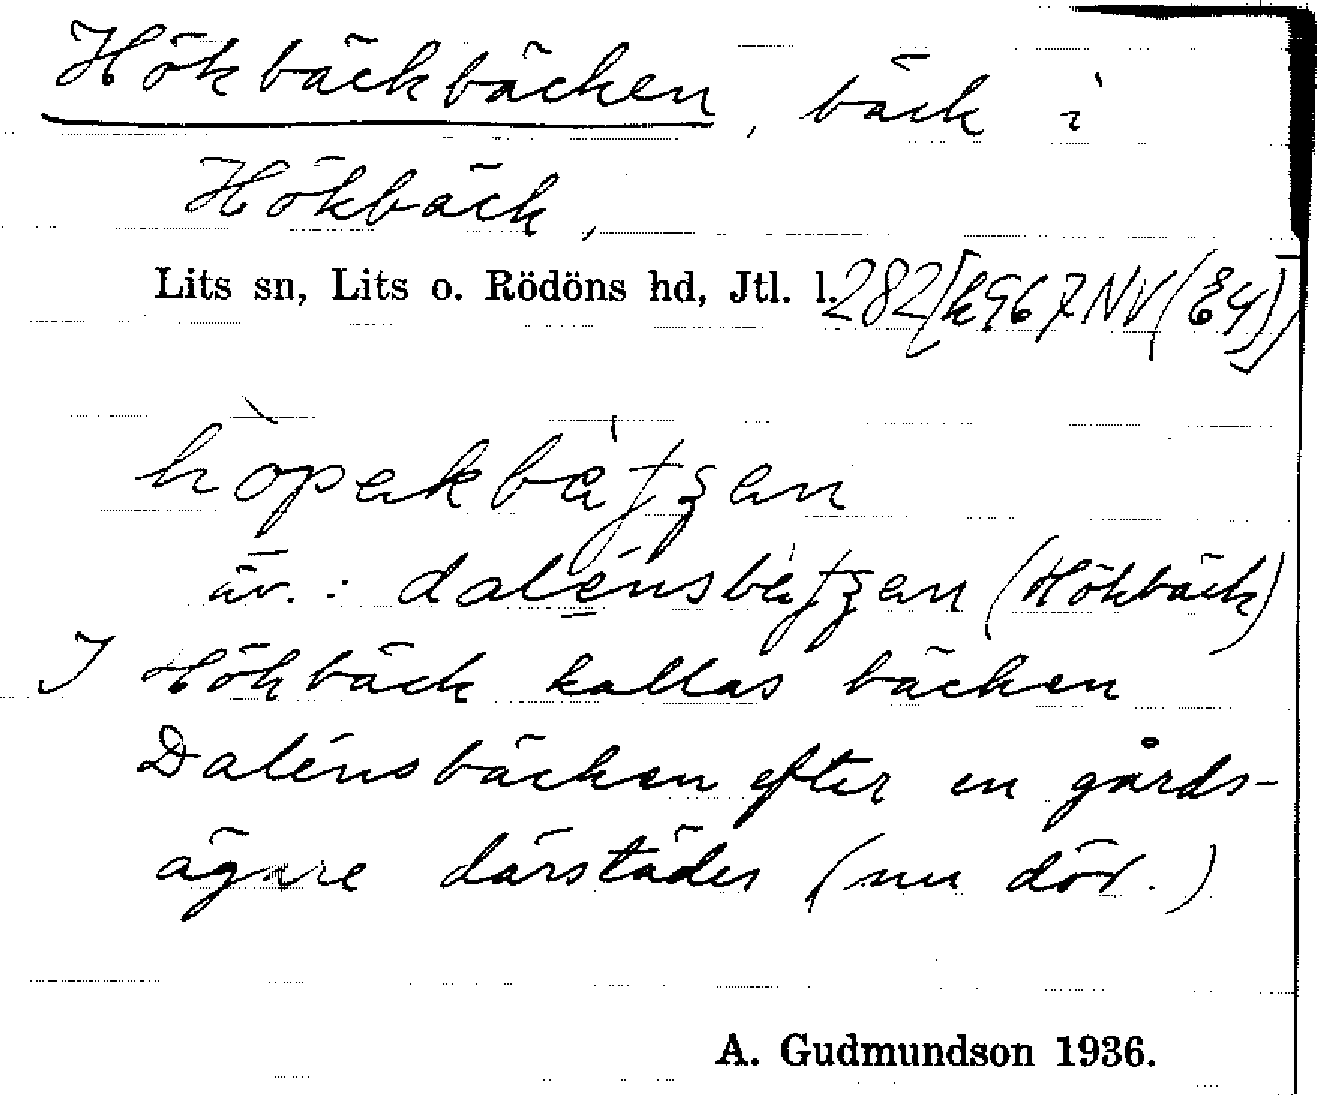 Hökbäckbäcken, bäck i
Hökbäck,
Lits sn, Lits o. Rödöns hd, Jtl. l. 282
äv.: (Hökbäck)
I Hökbäck kallas bäcken
Dalénsbäcken efter en gårds-
ägare därstädes (nu död.)
A. Gudmundson 1936.